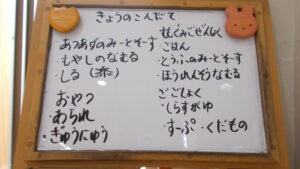 きょうのこんだて
・あつあげのみーとそーす
・もやしのなむる
・しる(
おやつ
・あられ
・ぎゅうにゅう
・ごはん
・とうふのみーとそーす
・ほうれんそうなむる
ごごしょく
・しらすがゆ
・すーぷ ・くだもの